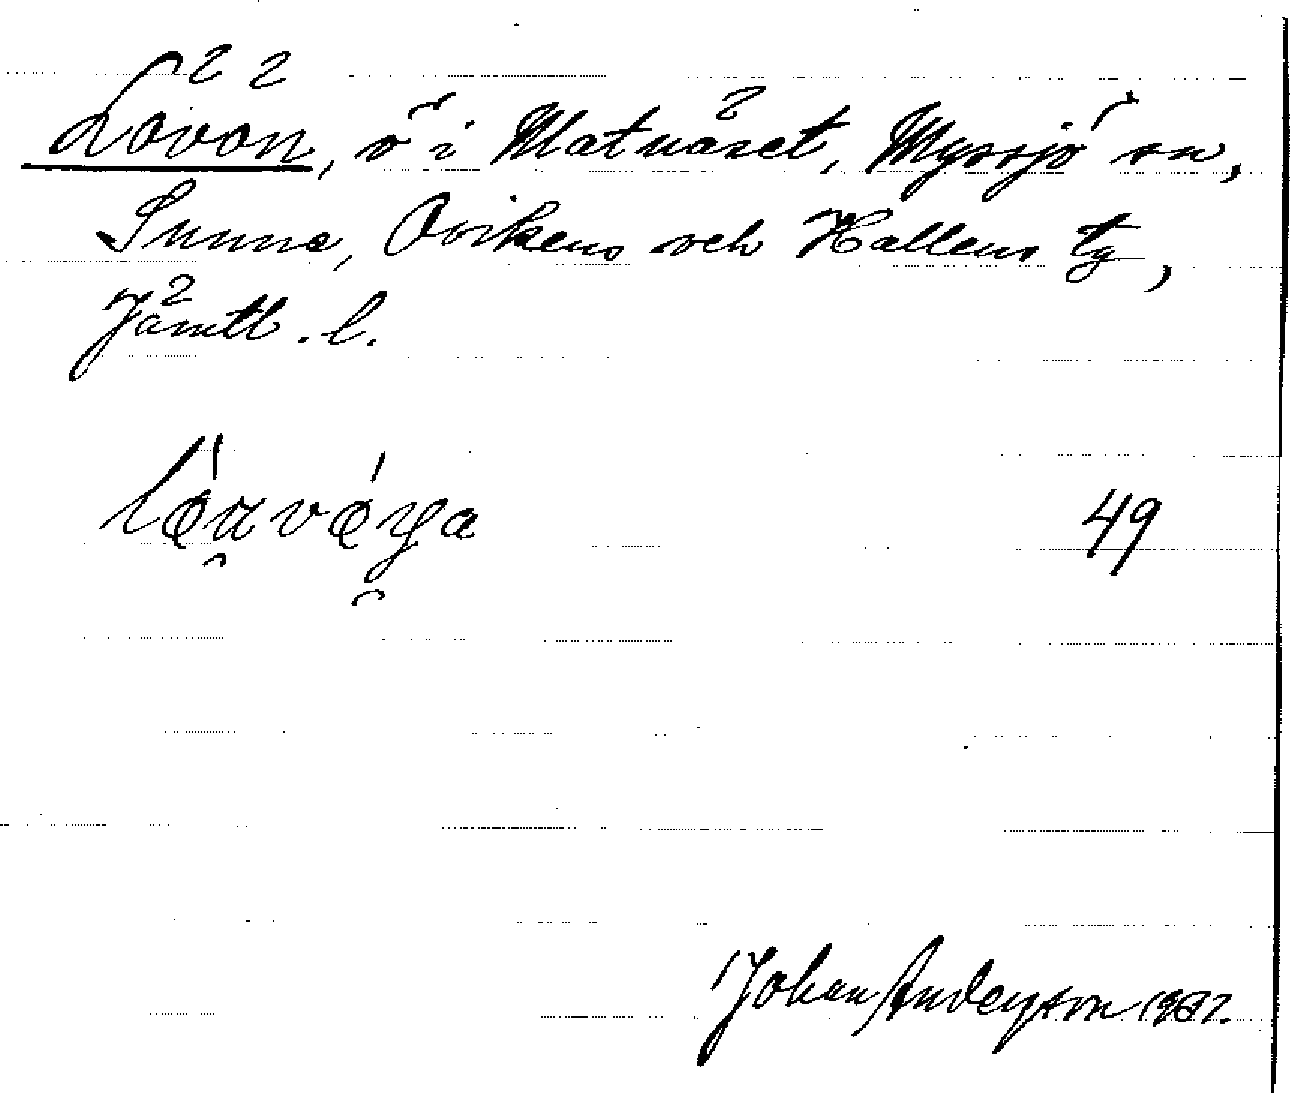 Lövön, ö i Matnäset, Myssjö sn,
Sunne, Ovikens och Hallens tg,
Jämtl. l.
49
Johan Anderson